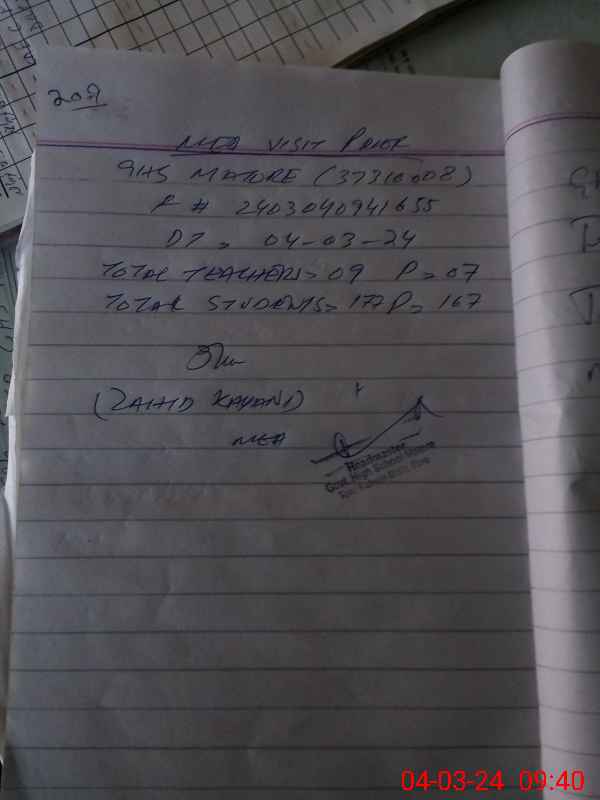 209
MEA VISIT PROOF
GHS MATORE (37310008)
F # 2403040941655
DT = 04-03-24
TOTAL TEACHERS = 09 P = 07
TOTAL STUDENTS = 177 P = 167
(ZAHID KAYANI)
MEA
Headmaster
Govt. High School Matore
04-03-24 09:40